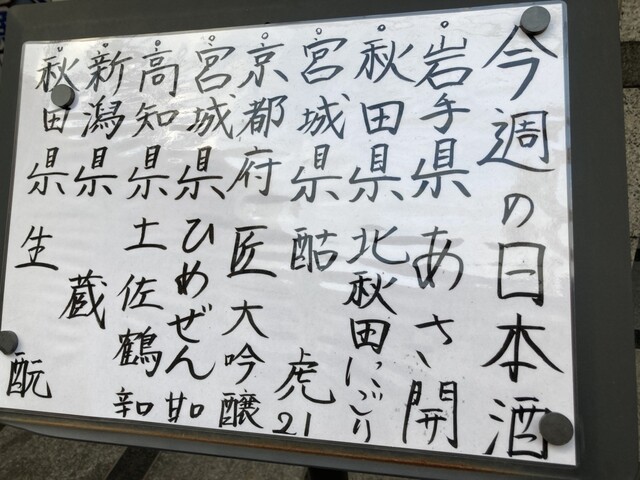 今週の日本酒
。岩手県 あさ開
。秋田県 北秋田にごり
。宮城県 酤 虎21
。京都府 匠大吟醸
。宮城県 ひめぜん 甘
。高知県 土佐鶴 辛和
。新潟県 蔵
。秋田県 生酛